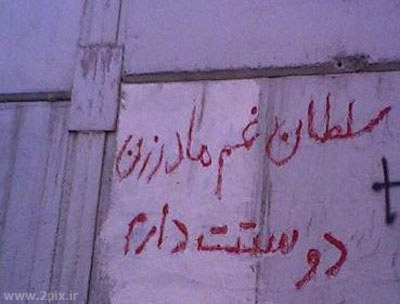 سلطان غم مادرزن
دوستت دارم
www.2pix.ir